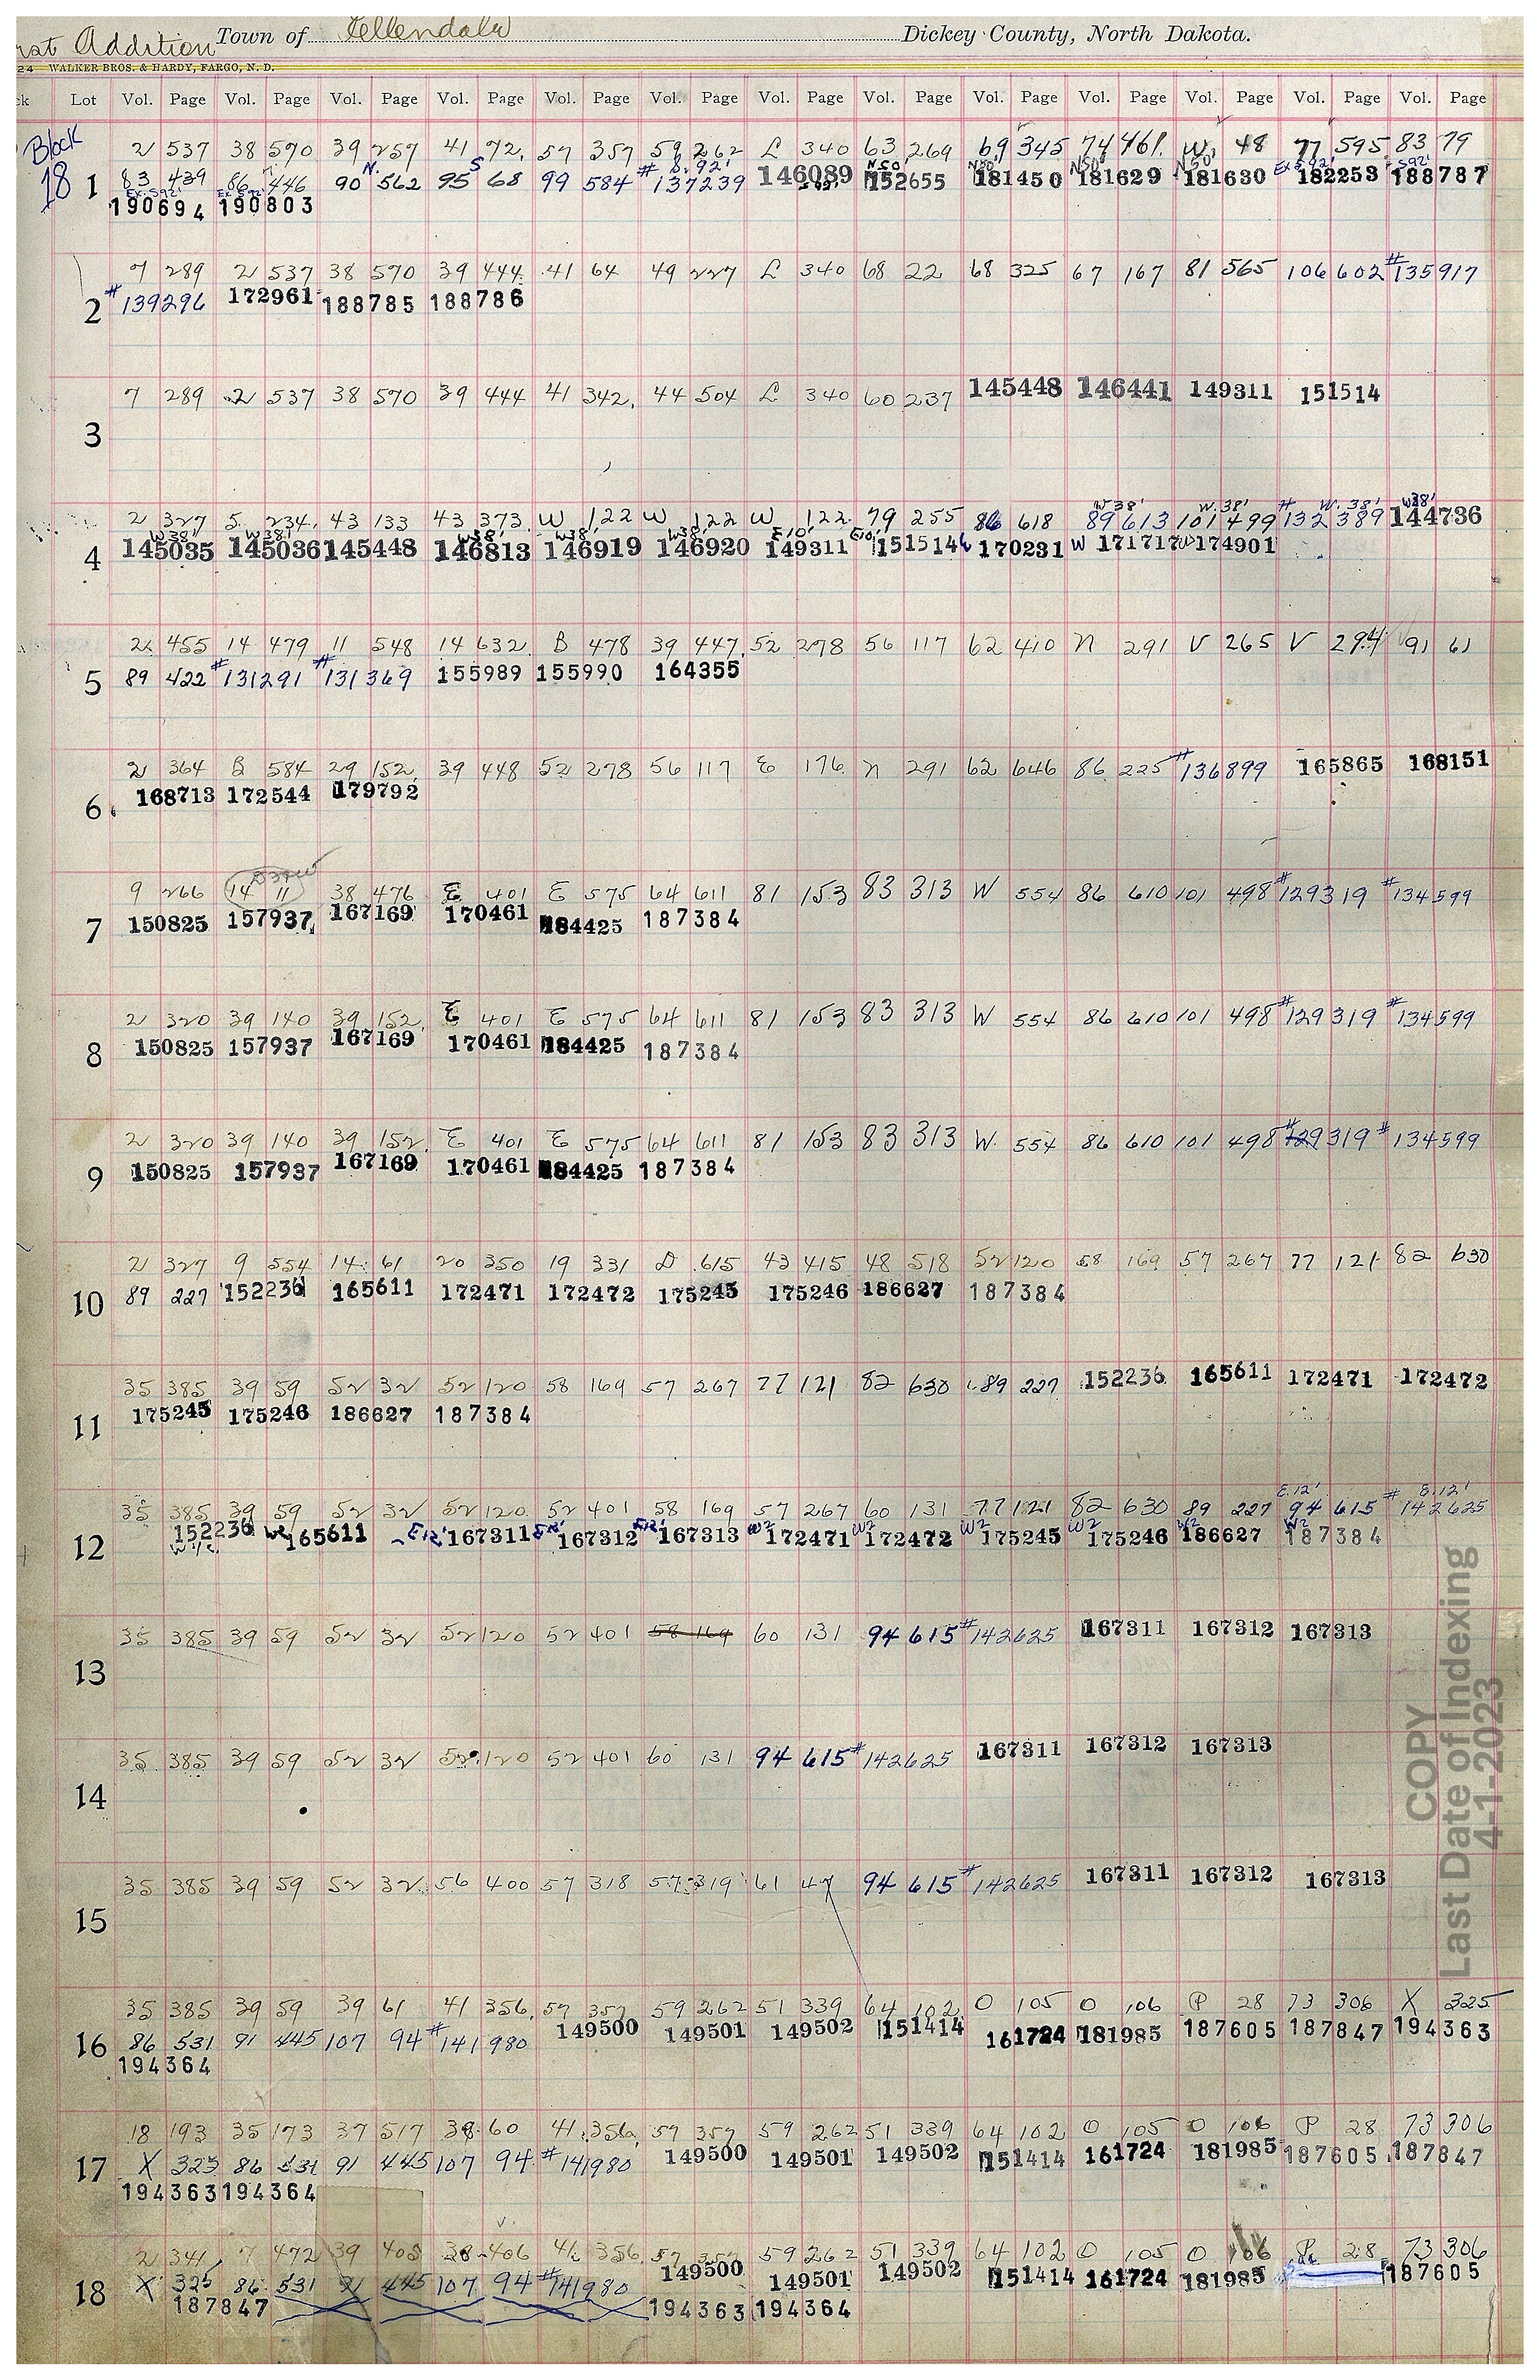 Addition Town of Ellendale Dickey County, North Dakota.
24 WALKER BROS. & HARDY, FARGO, N. D.
Lot Vol. Page Vol. Page Vol. Page Vol. Page Vol. Page Vol. Page Vol. Page Vol. Page Vol. Page Vol. Page Vol. Page Vol. Page Vol. Page
Block 2 537 38 570 39 257 41 72 57 357 59 262 L 340 63 269 69 345 74 461 W 48 77 595 83 79
N. S S. 92' N50' N50' N50' N50' Ex S92' S92'
18 1 83 439 86 446 90 562 95 68 99 584 #137239 146089 152655 181450 181629 181630 182253 188787
Ex. S92' Ex. S92' S92'
190694 190803
7 289 2 537 38 570 39 444 41 64 49 227 L 340 68 22 68 325 67 167 81 565 106 602 #135917
2 #139296 172961 188785 188786
7 289 2 537 38 570 39 444 41 342 44 504 L 340 60 237 145448 146441 149311 151514
3
W38' W.38' W. 38' W38'
2 327 5 234 43 133 43 373 W 122 W 122 W 122 79 255 86 618 89 613 101 499 #132 389 144736
W38' W38' W38' W38' W38' E10' E10'
4 145035 145036 145448 146813 146919 146920 149311 151514 170231 W 171717 W 174901
2 455 14 479 11 548 14 632 B 478 39 447 52 278 56 117 62 410 N 291 V 265 V 294 91 61
5 89 422 #131291 #131369 155989 155990 164355
2 364 B 584 29 152 39 448 52 278 56 117 E 176 N 291 62 646 86 225 #136899 165865 168151
6 168713 172544 179792
9 266 14 11 38 476 E 401 E 575 64 611 81 153 83 313 W 554 86 610 101 498 #129319 #134599
7 150825 157937 167169 170461 184425 187384
2 320 39 140 39 152 E 401 E 575 64 611 81 153 83 313 W 554 86 610 101 498 #129319 #134599
8 150825 157937 167169 170461 184425 187384
2 320 39 140 39 152 E 401 E 575 64 611 81 153 83 313 W. 554 86 610 101 498 #129319 #134599
9 150825 157937 167169 170461 184425 187384
2 327 9 554 14 61 20 350 19 331 D 615 43 415 48 518 52 120 58 169 57 267 77 121 82 630
10 89 227 152236 165611 172471 172472 175245 175246 186627 187384
35 385 39 59 52 32 52 120 58 169 57 267 77 121 82 630 89 227 152236 165611 172471 172472
11 175245 175246 186627 187384
E.12' E.12'
35 385 39 59 52 32 52 120 52 401 58 169 57 267 60 131 77 121 82 630 89 227 94 615 #142625
12 152236 W2 165611 E12' 167311 E12' 167312 E12' 167313 W2 172471 W2 172472 W2 175245 W2 175246 W2 186627 W2 187384
W 1/2
35 385 39 59 52 32 52 120 52 401 58 169 60 131 94 615 #142625 167311 167312 167313
13
35 385 39 59 52 32 52 120 52 401 60 131 94 615 #142625 167311 167312 167313
14
35 385 39 59 52 32 56 400 57 318 57 319 61 47 94 615 #142625 167311 167312 167313
15
35 385 39 59 39 61 41 356 57 357 59 262 51 339 64 102 O 105 O 106 P 28 73 306 X 325
16 86 531 91 445 107 94 #141980 149500 149501 149502 151414 161724 181985 187605 187847 194363
194364
18 193 35 173 37 517 38 60 41 356 57 357 59 262 51 339 64 102 O 105 O 106 P 28 73 306
17 X 325 86 531 91 445 107 94 #141980 149500 149501 149502 151414 161724 181985 187605 187847
194363 194364
2 341 7 472 39 405 38 406 41 356 57 357 59 262 51 339 64 102 O 105 O 106 P 28 73 306
18 X 325 86 531 91 445 107 94 #141980 149500 149501 149502 151414 161724 181985 187605
187847 194363 194364
COPY
Last Date of Indexing
4-1-2023